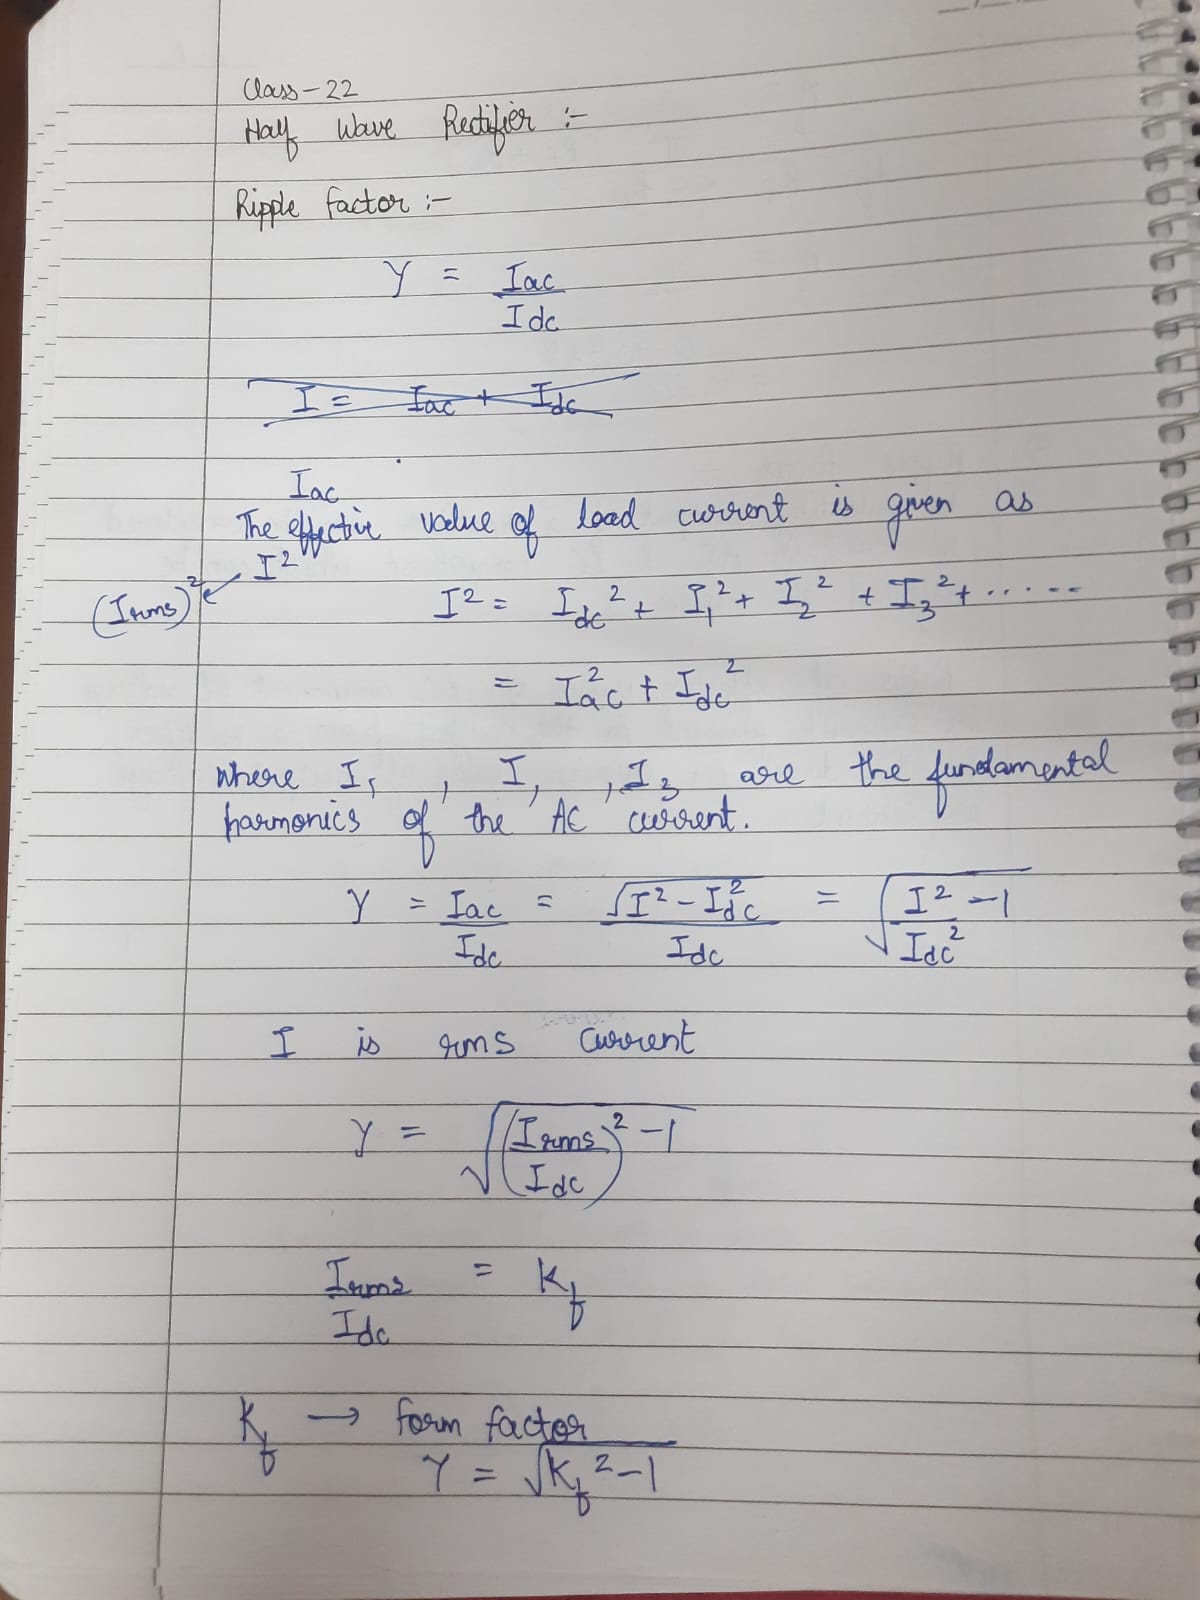 Class-22
Half Wave Rectifier :-
Ripple factor :-
γ = Iac / Idc
I = Iac + Idc
Iac
The effective value of load current is given as
(Irms)² ← I²
I² = Idc² + I₁² + I₂² + I₃² + ......
= Iac² + Idc²
where I₁, I₁, I₃ are the fundamental
harmonics of the AC current.
γ = Iac / Idc = √(I² - Idc²) / Idc = √(I² / Idc² - 1)
I is rms current
γ = √((Irms / Idc)² - 1)
Irms / Idc = Kf
Kf → form factor
γ = √(Kf² - 1)